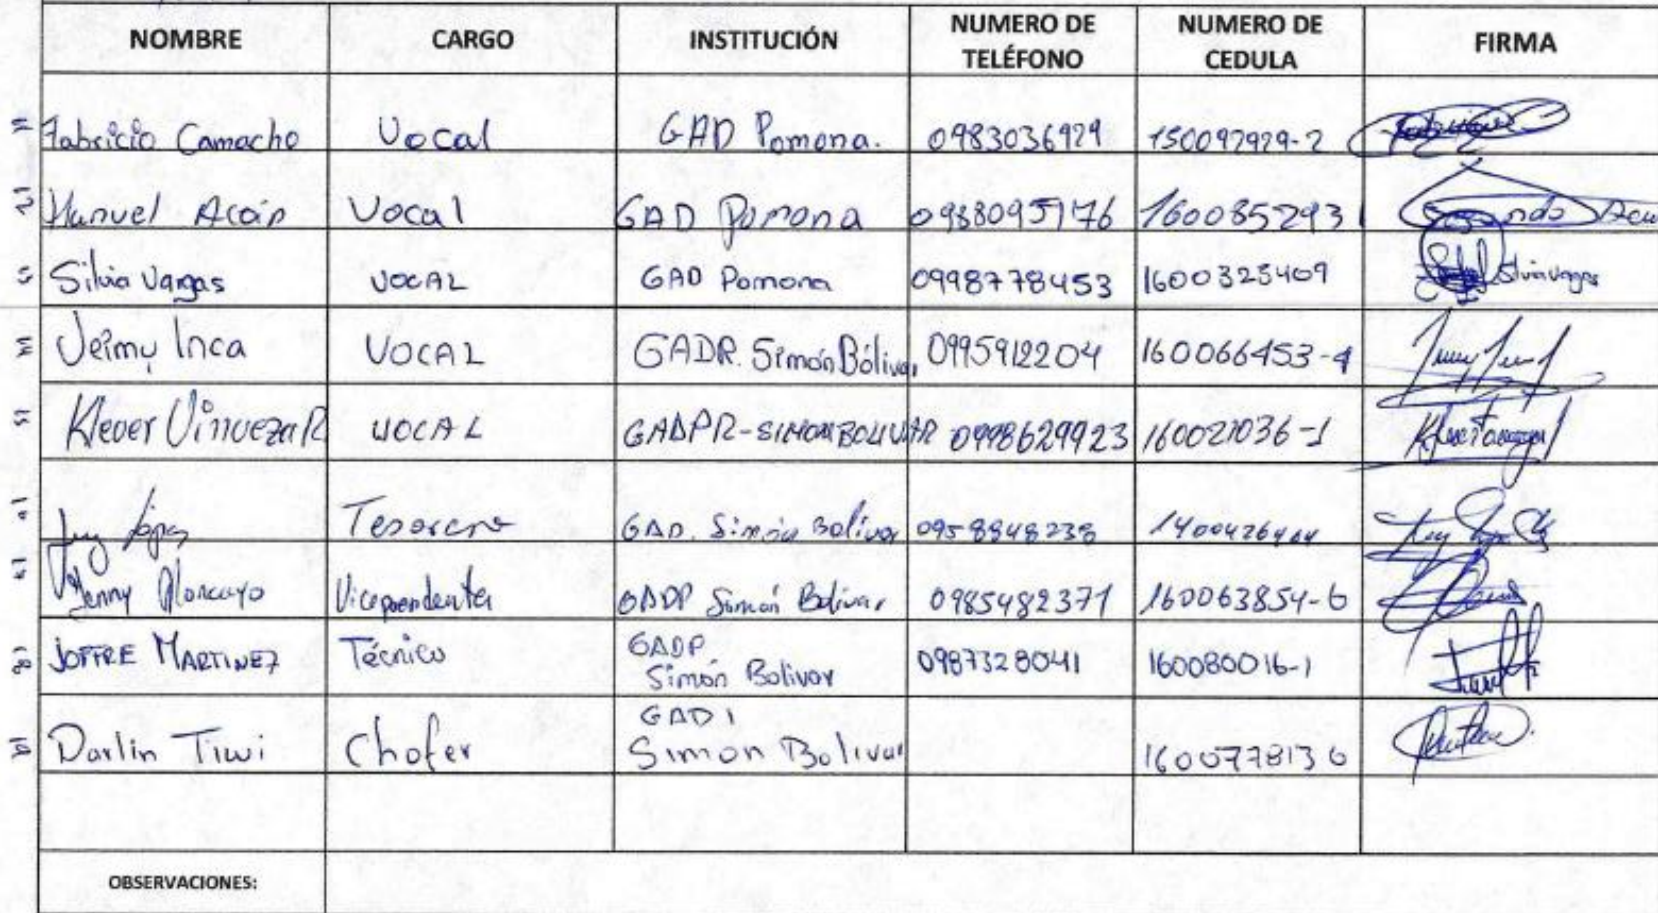 NOMBRE CARGO INSTITUCIÓN NUMERO DE TELÉFONO NUMERO DE CEDULA FIRMA
11 Fabricio Camacho Vocal GAD Pomona. 0983036929 150092929-2
12 Manuel Vocal GAD Pomona 0988095976 1600852931
Silvia Vargas VOCAL GAD Pomona 0998778453 1600325409 Silvia Vargas
Jeimy Inca VOCAL GADR. Simón Bólivar 0995912204 160066453-4
15 Klever Vinueza R VOCAL GADPR-SIMON BOLIVAR 0998629923 160021036-1
López GAD. Simón Bolivar 0958848238
Jenny Moncayo GADP Simón Bolivar 0985482371 160063854-6
18 JOFFRE MARTINEZ Técnico GADP Simón Bolivar 0987328041 160080016-1
19 Darlin Tiwi Chofer Simon Bolivar 1600778136
OBSERVACIONES: